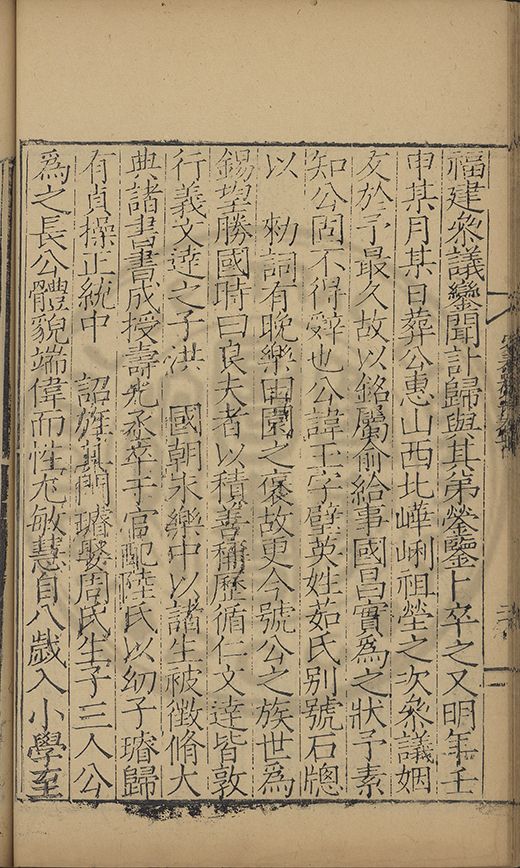 福建叅議鑾聞訃歸與其弟鎣鑒卜卒之又明年壬
申某月某日葬公惠山西北祖塋之次叅議姻
友於予最久故以銘屬俞給事國昌實為之狀予素
知公固不得辭也公諱玉字璧英姓茹氏別號石牕
以　勑詞有晚樂田園之襃故更今號公之族世為
錫望勝國時曰良夫者以積善稱歷循仁文逹皆敦
行義文逹之子洪　國朝永樂中以諸生被徵脩大
典諸書書成授壽光丞卒于官配陸氏以幼子璿歸
有貞操正統中　詔旌其門璿娶周氏生子三人公
為之長公體貌端偉而性尤敏慧自八歲入小學至